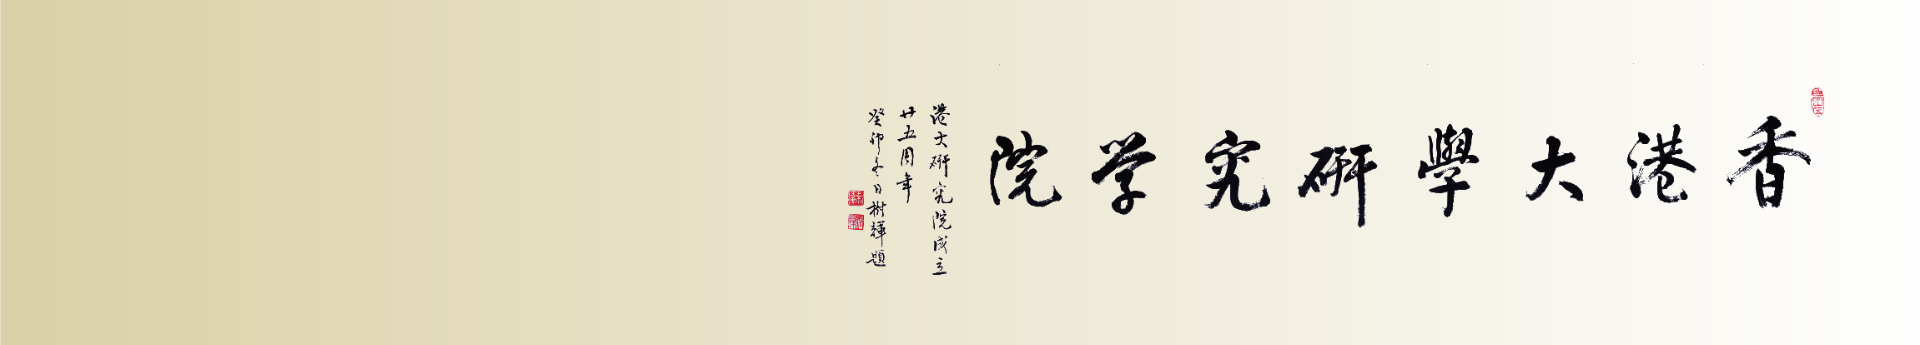 香港大學研究学院
港大研究院成立
廿五周年
癸卯冬日樹輝題